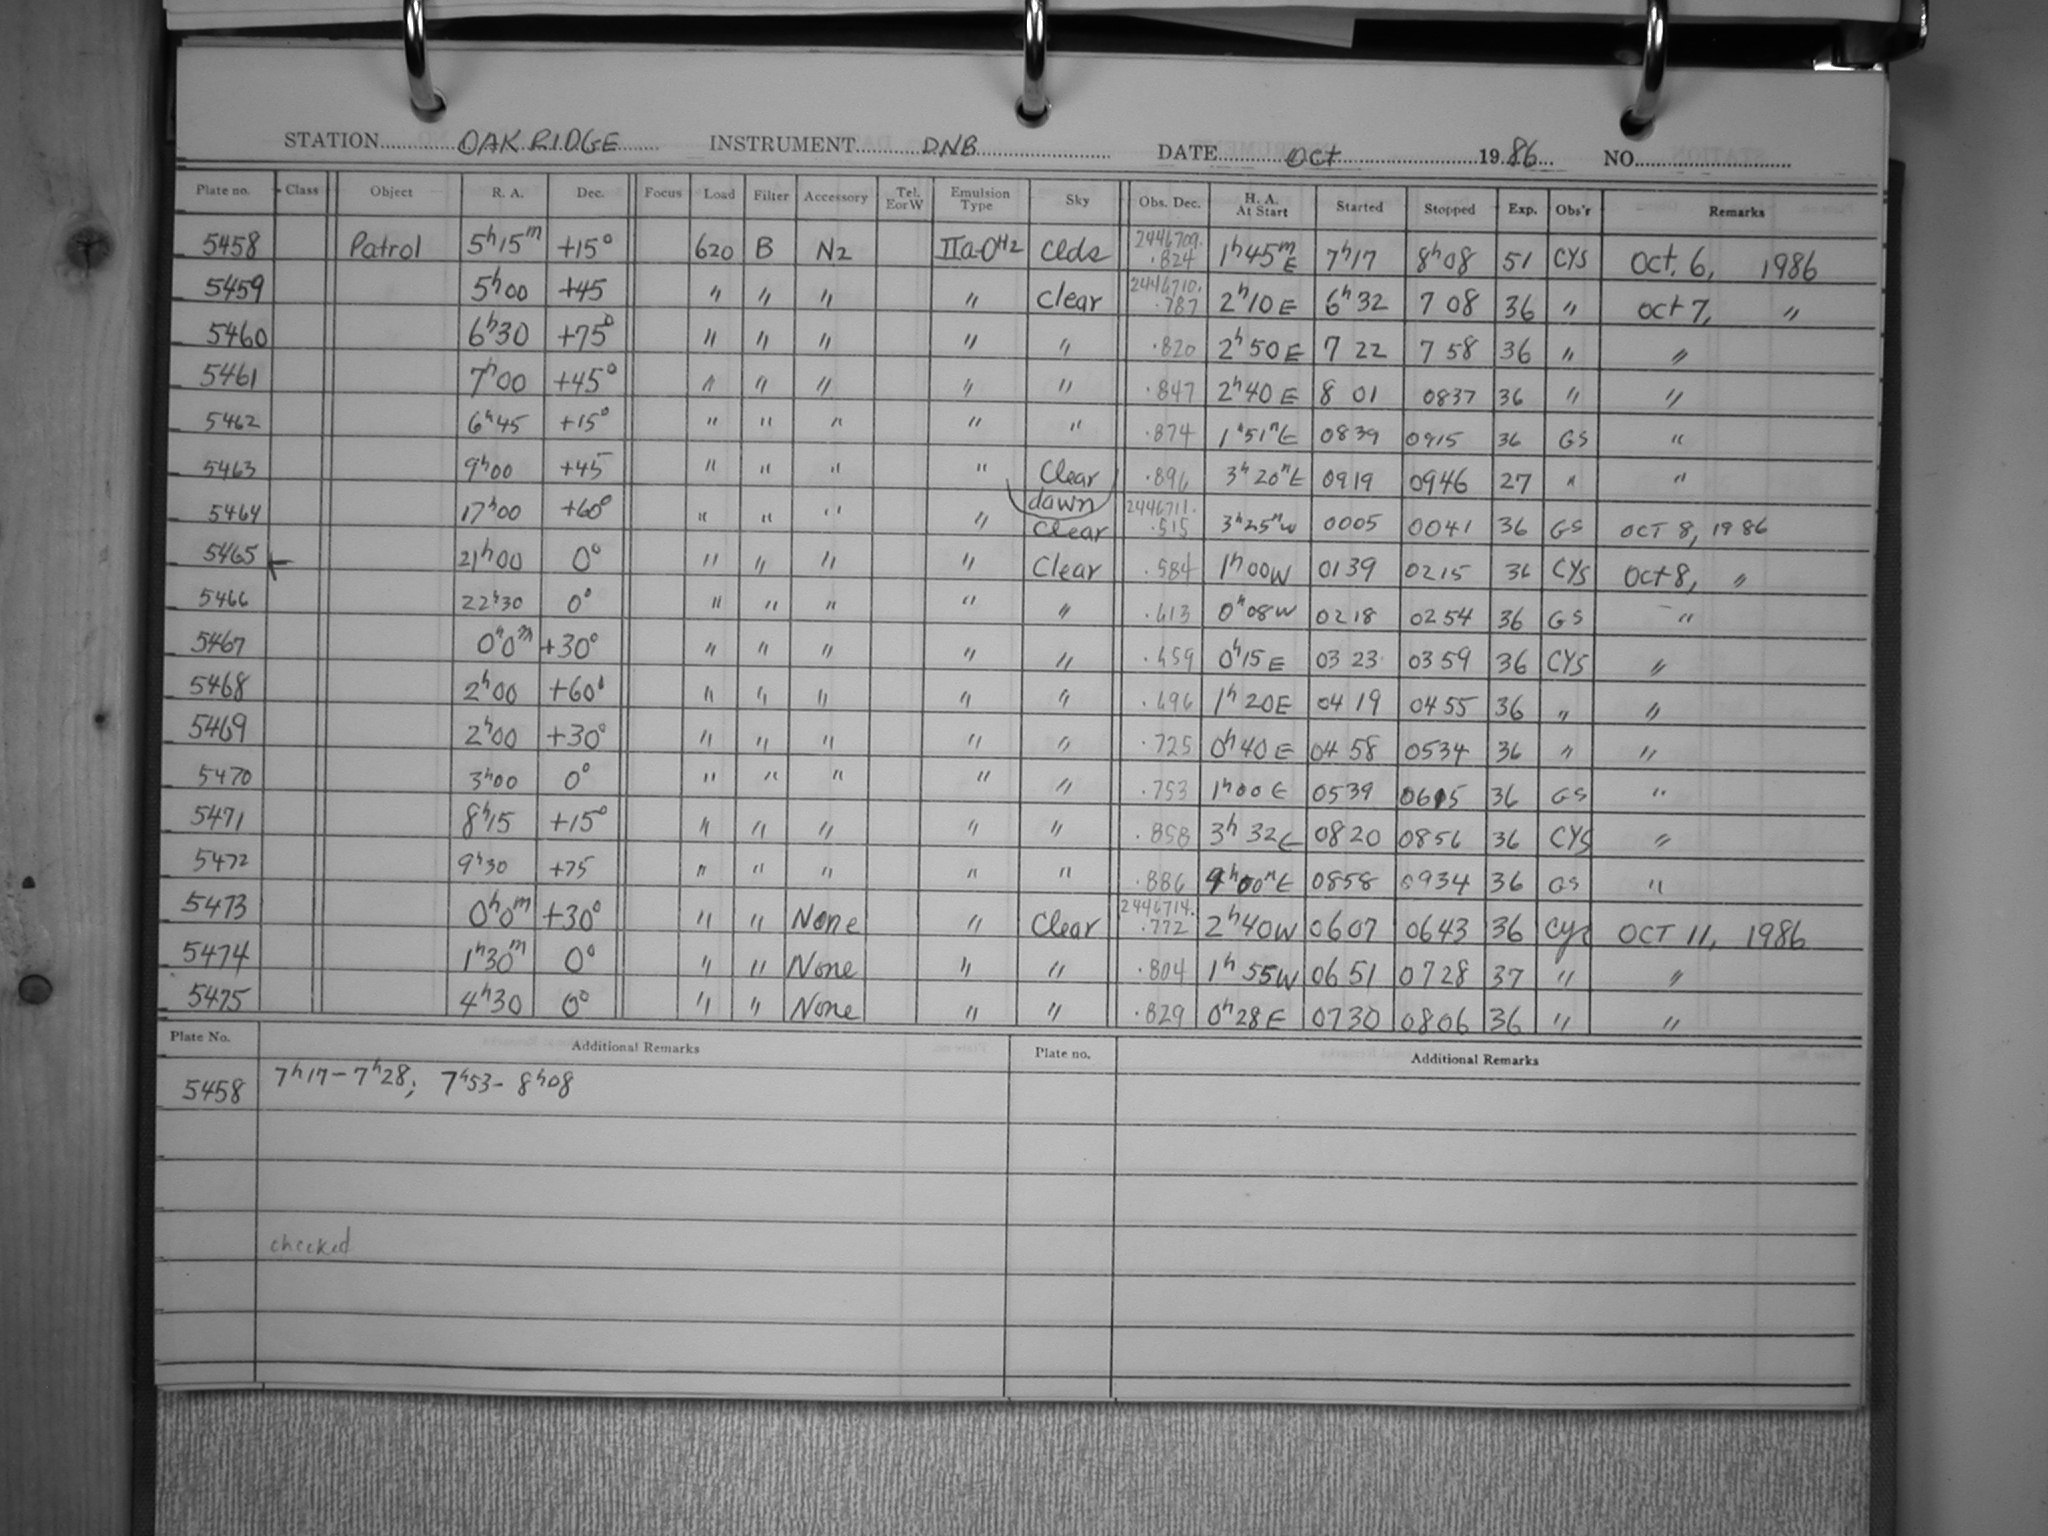 STATION OAK RIDGE INSTRUMENT DNB DATE Oct 1986 NO.
Plate no. Class Object R. A. Dec. Focus Load Filter Accessory Tel. E or W Emulsion Type Sky Obs. Dec. H. A. At Start Started Stopped Exp. Obs'r Remarks
5458 Patrol 5h15m +15° 620 B N2 IIa-OH2 Clds 2446709. .824 1h45mE 7h17 8h08 51 CYS Oct. 6, 1986
5459 5h00 +45 " " " " Clear 2446710. .787 2h10E 6h32 7 08 36 " Oct 7, "
5460 6h30 +75° " " " " " .820 2h50E 7 22 7 58 36 " "
5461 7h00 +45° " " " " " .847 2h40E 8 01 0837 36 " "
5462 6h45 +15° " " " " " .874 1h51mE 0839 0915 36 GS "
5463 9h00 +45 " " " " Clear dawn .896 3h20mE 0919 0946 27 " "
5464 17h00 +60° " " " " Clear 2446711. .515 3h25mW 0005 0041 36 GS OCT 8, 1986
5465 21h00 0° " " " " Clear .584 1h00W 0139 0215 36 CYS Oct 8, "
5466 22h30 0° " " " " " .613 0h08W 0218 0254 36 GS "
5467 0h0m +30° " " " " " .659 0h15E 0323 0359 36 CYS "
5468 2h00 +60° " " " " " .696 1h20E 0419 0455 36 " "
5469 2h00 +30° " " " " " .725 0h40E 0458 0534 36 " "
5470 3h00 0° " " " " " .753 1h00E 0539 0615 36 GS "
5471 8h15 +15° " " " " " .858 3h32E 0820 0856 36 CYS "
5472 9h30 +75 " " " " " .886 4h00mE 0858 0934 36 GS "
5473 0h0m +30° " " None " Clear 2446714. .772 2h40W 0607 0643 36 CYS OCT 11, 1986
5474 1h30m 0° " " None " " .804 1h55W 0651 0728 37 " "
5475 4h30 0° " " None " " .829 0h28E 0730 0806 36 " "
Plate No. Additional Remarks Plate no. Additional Remarks
5458 7h17-7h28; 7h53-8h08
checked